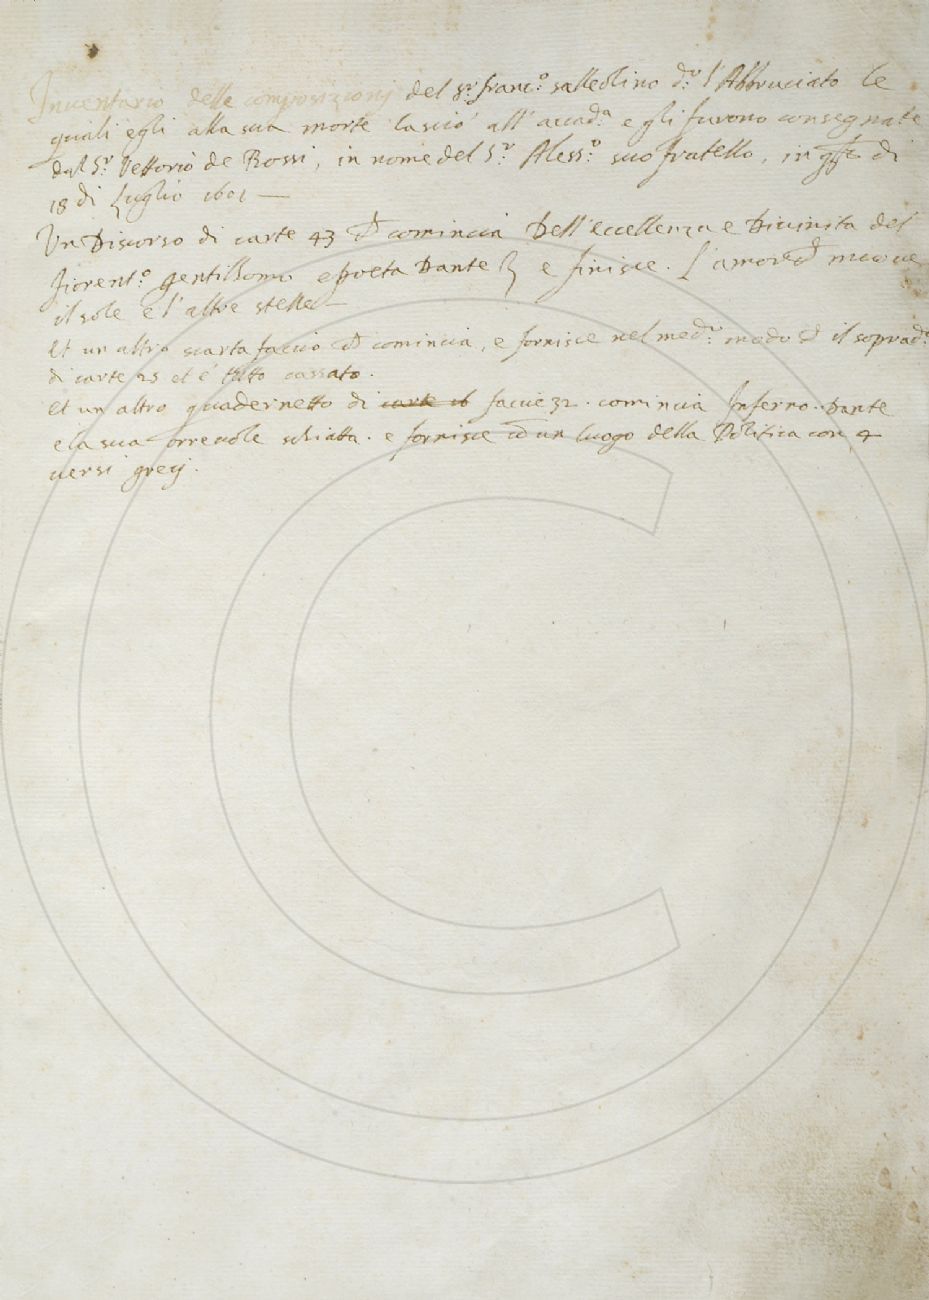 Inventario delle composizioni del Sr. Franc.o Salleolino d.o l'Abbruciato le
quali egli alla sua morte lasciò all'accad.a e gli furono consegnate
dal S.r Vettorio de Rossi, in nome del S.r Aless.o suo fratello, in di
18 di Luglio 1601 —
Un Discorso di carte 43 comincia Dell'eccellenza e Divinita del
fiorent.o gentilhomo e poeta Dante e finisce. L'amor muove
il sole e l'altre stelle —
Et un altro scartafaccio comincia, e fornisce nel med.o modo il soprad.o
di carte 25 et è tutto cassato.
Et un altro quadernetto di carte 16 faccie 32. comincia Inferno. Dante
e la sua orrevole schiatta. e fornisce un luogo della Politica con 4
versi greci.